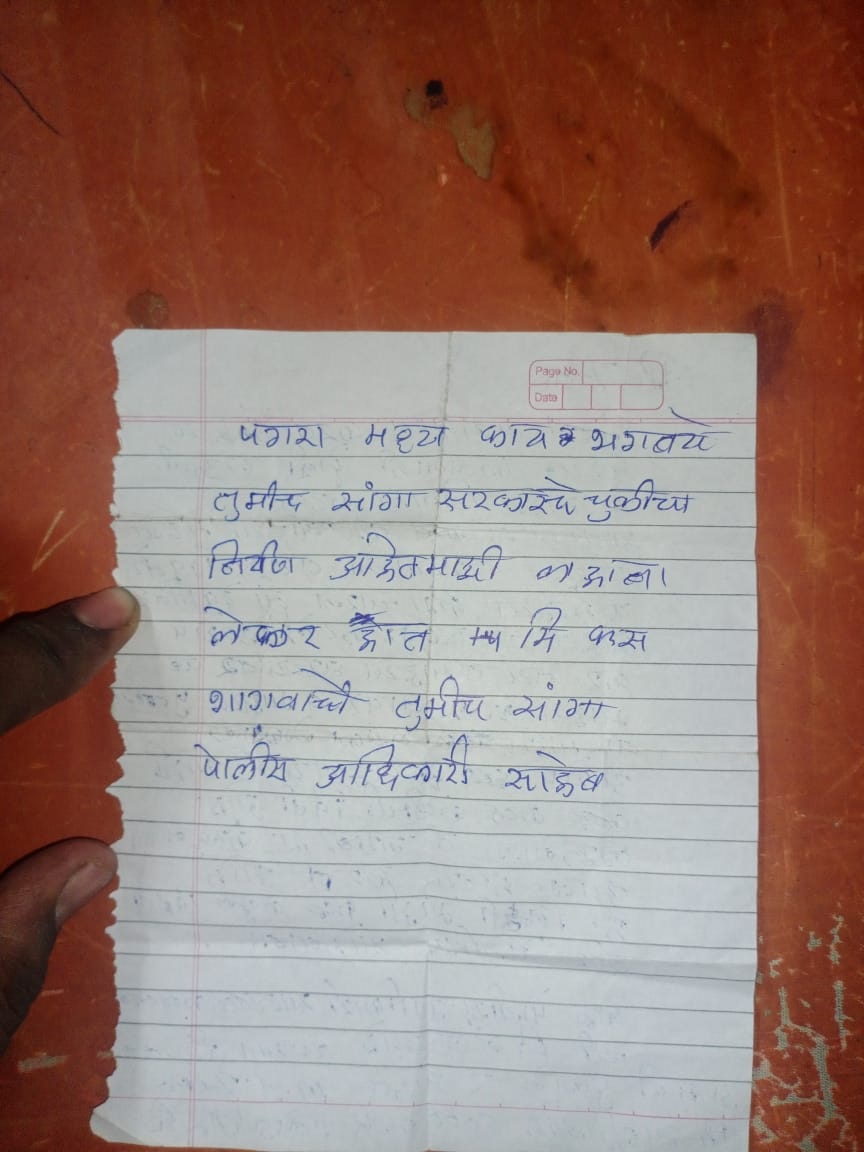 Page No.
Date
पगरा मध्य काय भागवाचे
तुमीच सांगा सरकारचे चुकीचा
निर्णय आहेत माझी
लेकर आत मि कस
भागवाचे तुमीच सांगा
पोलीस आधिकारी साहेब